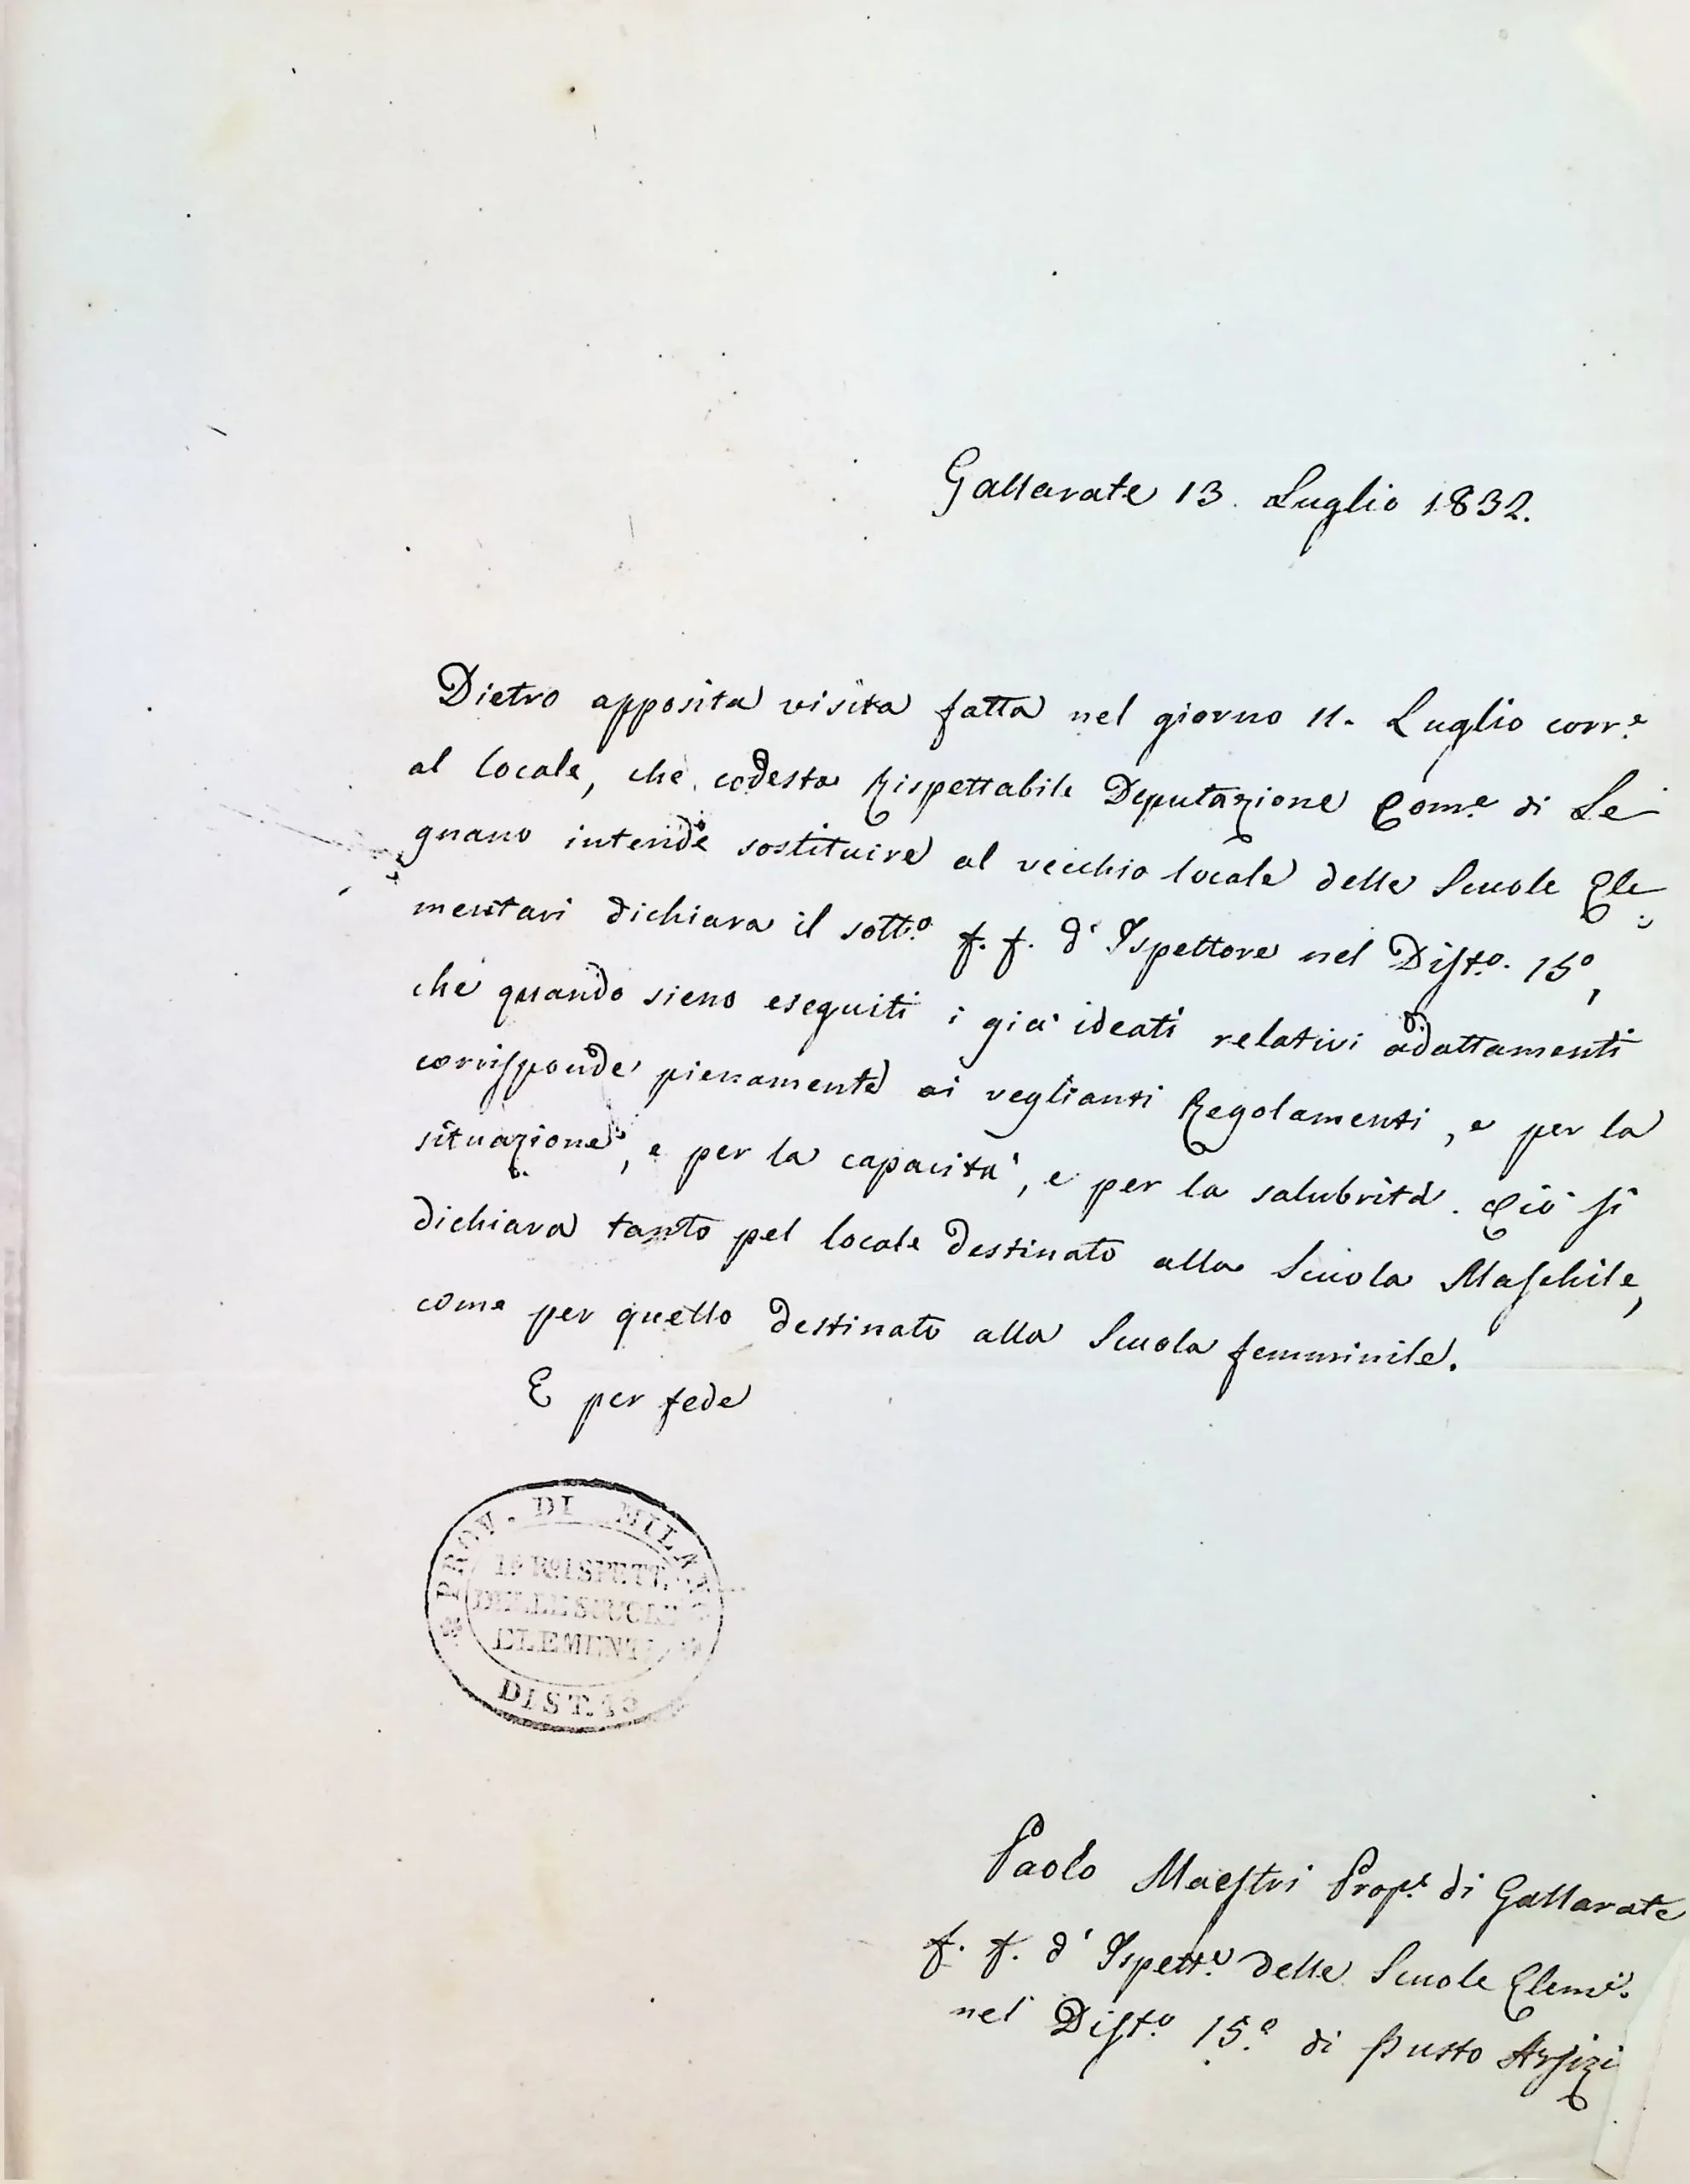 Gallarate 13. Luglio 1832.
Dietro apposita visita fatta nel giorno 11. Luglio corr.e
al locale, che codesta Rispettabile Deputazione Com.e di Le-
gnano intende sostituire al vecchio locale delle Scuole Ele-
mentari dichiara il sott.o f. f. d'Ispettore nel Dist.o 15.o,
che quando sieno eseguiti i già ideati relativi adattamenti
corrisponde pienamente ai veglianti Regolamenti, e per la
situazione, e per la capacità, e per la salubrità. Ciò si
dichiara tanto pel locale destinato alla Scuola Maschile,
come per quello destinato alla Scuola femminile.
E per fede
PROV. DI MILANO
ISPETT.
DELLE SCUOLE
ELEMENT.
DIST. 15
Paolo Maestri Prop.t di Gallarate
f. f. d'Ispett.e delle Scuole Elem.i
nel Dist.o 15.o di Busto Arsizi